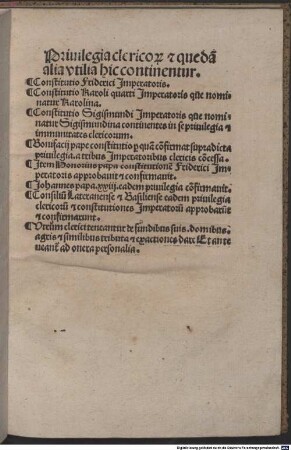 Priuilegia clericoꝝ ⁊ quedā
alia vtilia hic continentur.
¶Constitutio Friderici Imperatoris.
¶Constitutio Karoli quarti Imperatoris que nomi
natur Karolina.
¶Constitutio Sigismundi Imperatoris que nomi
natur Sigismundina continentes in se priuilegia ⁊
immunitates clericorum.
¶Bonifacij pape constitutio ꝑ quā cōfirmat supradicta
priuilegia. a tribus Imperatoribus clericis cōcessa.
¶Item Honorius papa constitutionē Friderici Im
peratoris approbauit ⁊ confirmauit.
¶Johannes papa .xxiij. eadem priuilegia cōfirmauit.
¶Consiliū Lateranense ⁊ Basiliense eadem priuilegia
clericorū ⁊ constitutiones Imperatorū approbarūt
⁊ confirmarunt.
¶Utrum clerici teneantur de fundibus suis. domibus.
agris ⁊ similibus tributa ⁊ exactiones dare Et an te
neant᷑ ad onera personalia.